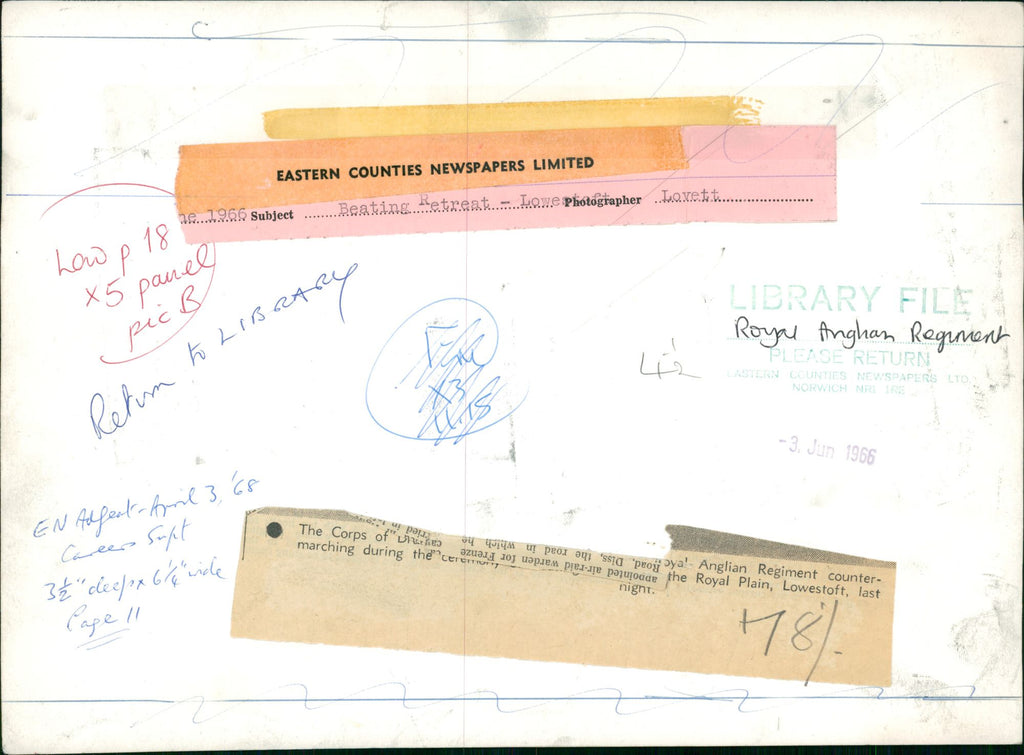 EASTERN COUNTIES NEWSPAPERS LIMITED
ne 1966 Subject Beating Retreat - Lowestoft Photographer Lovett
Low p 18
x5 panel
pic B
Return to LIBRARY
x3
LIBRARY FILE
Royal Anglian Regiment
PLEASE RETURN
EASTERN COUNTIES NEWSPAPERS LTD
NORWICH NR1 1RE
-3. Jun 1966
EN Adfeat - April 3, '68
Careers Supt
3½" deep x 6¼" wide
Page 11
The Corps of Royal Anglian Regiment counter-
marching during the ceremony the Royal Plain, Lowestoft, last
night.
appointed air-raid warden for Frenze
Road, Diss, the road in which he
78/-